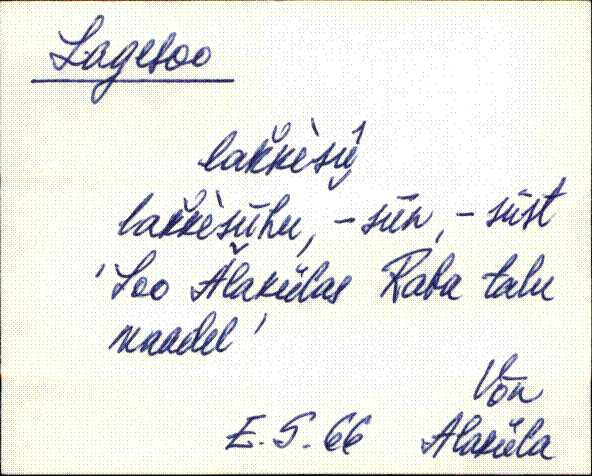 Lagesoo
lak̆k̆èsū́
lak̆k̆èsūhu, -sūn, -sūst
'Soo Alakülas Raba talu
maadel'
Võn
E. S. 66 Alaküla